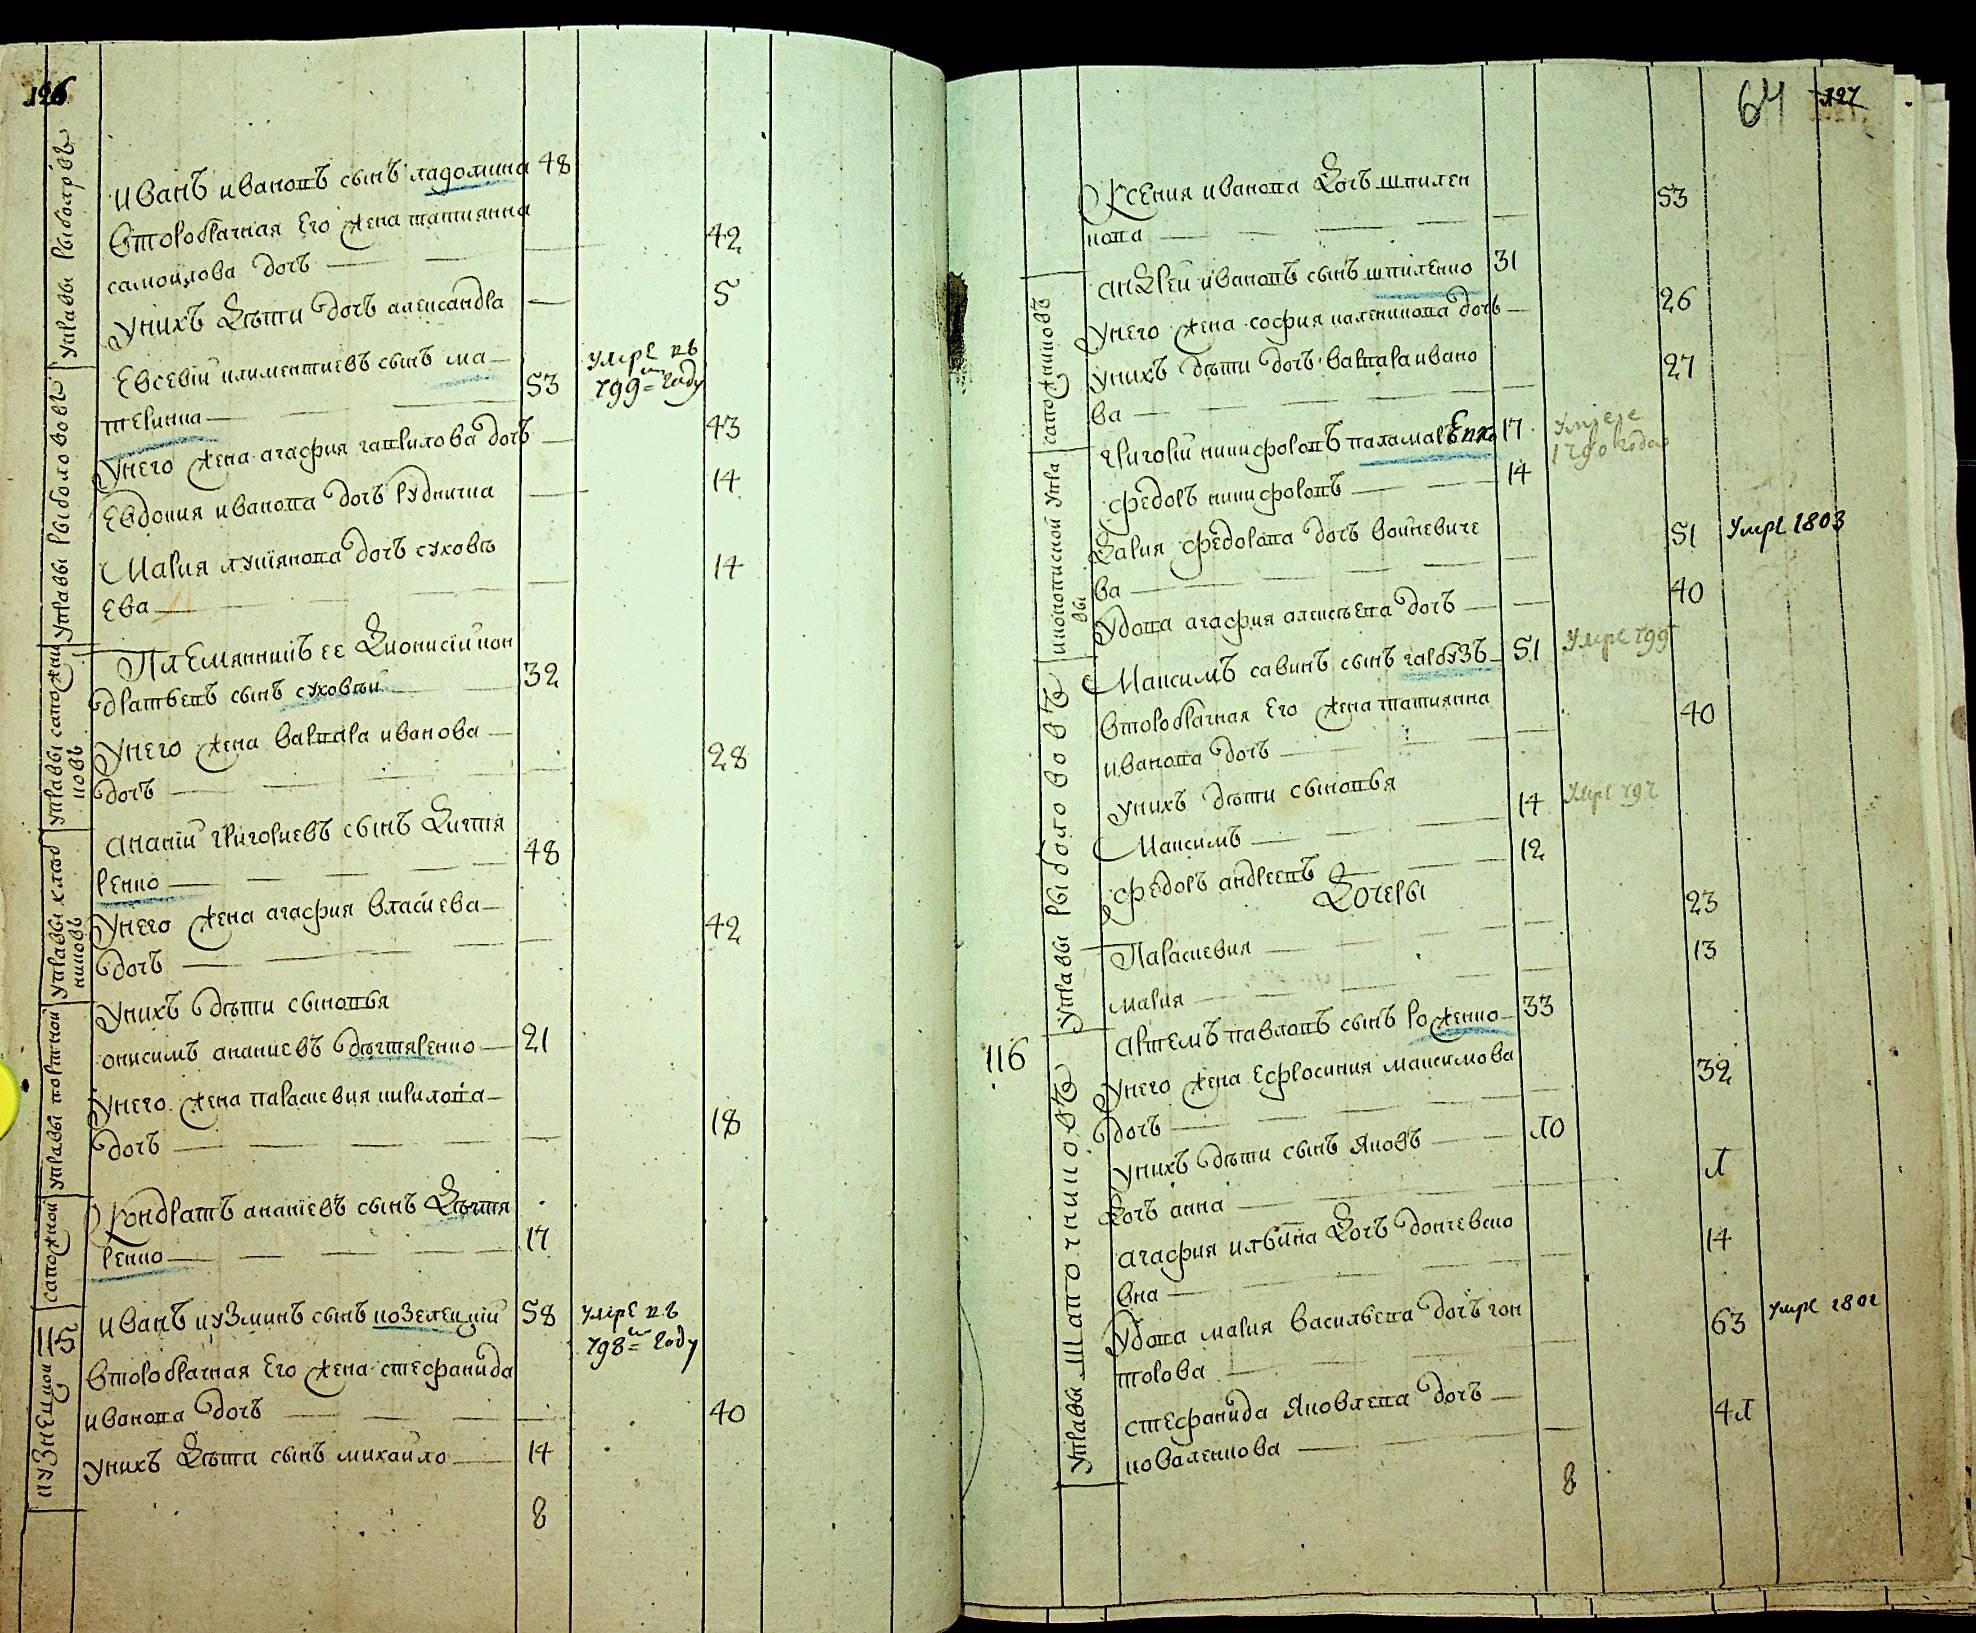 126
Управы рыболововъ
иванъ ивановъ сынъ ладомина 48
второбрачная его жена татиянна
самойлова дочь — 42
унихъ дѣти дочь александра — 5
Евсевiй климентиевъ сынъ ма
теринка — 53 умре въ 799м году
унего жена агафия гаврилова дочь — 43
Евдокия иванова дочь рудничка — 14
Мария лукiянова дочь суховѣ
ева — 14
Управы рыболововъ
Племянникъ ее дионисiй кон
дратьевъ сынъ суховѣй — 32
унего жена варвара иванова —
дочь — 28
управы сапожни
ковъ
ананiй григориевъ сынъ дигтя
ренко — 48
унего жена агафия власиева —
дочь — 42
управы
никовъ
унихъ дѣти сыновья
онисимъ ананиевъ дѣгтяренко — 21
унего жена параскевия кирилова —
дочь — 18
управы портной
Кондратъ ананiевъ сынъ дѣгтя
ренко — 17
сапожной
иванъ кузминъ сынъ козелецкiй 58 умре въ 798м году
второбрачная его жена стефанида
иванова дочь — 40
унихъ дѣти сынъ михайло — 14
115
кузнецкой
8
64 127
Ксения иванова дочь шпилен
кова — 53
андрей ивановъ сынъ шпиленко 31
унего жена софия каленикова дочь — 26
унихъ дѣти дочь варвара ивано
ва — 27
сапожниковъ
григорiй никифоровъ паламаренко 17 умре 1790 года
федоръ никифоровъ — 14
Дария федорова дочь войневиче
ва — 51 умре 1803
удова агафия алексѣева дочь — 40
иконописной упра
вы
Максимъ савинъ сынъ гарбузъ 51 умре 799
второбрачная его жена татиянна
иванова дочь — 40
унихъ дѣти сыновья
Максимъ — 14 умре 797
федоръ андреевъ — 12
Дочеры
Параскевия — 23
мария — 13
Управы рыболововъ
116
артемъ павловъ сынъ роженко 33
унего жена Ефросиния максимова
дочь — 32
унихъ дѣти сынъ яковъ — 10
дочь анна — 1
агафия ильина дочь дончевско
вна — 14
удова мария васильева дочь гон
торова — 63 умре 1801
стефанида яковлева дочь —
коваленкова — 41
Управы шапочниковъ
8